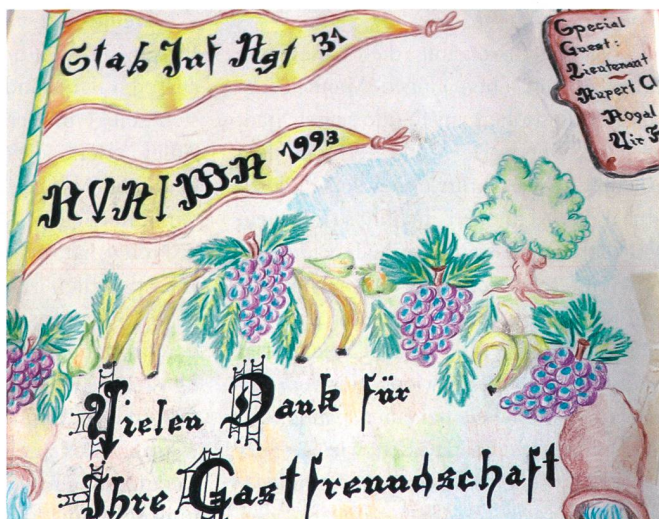 Stab Inf Rgt 31
AVA/WA 1993
Special
Guest:
Lieutenant
Rupert
Royal
Air
Vielen Dank für
Ihre Gastfreundschaft